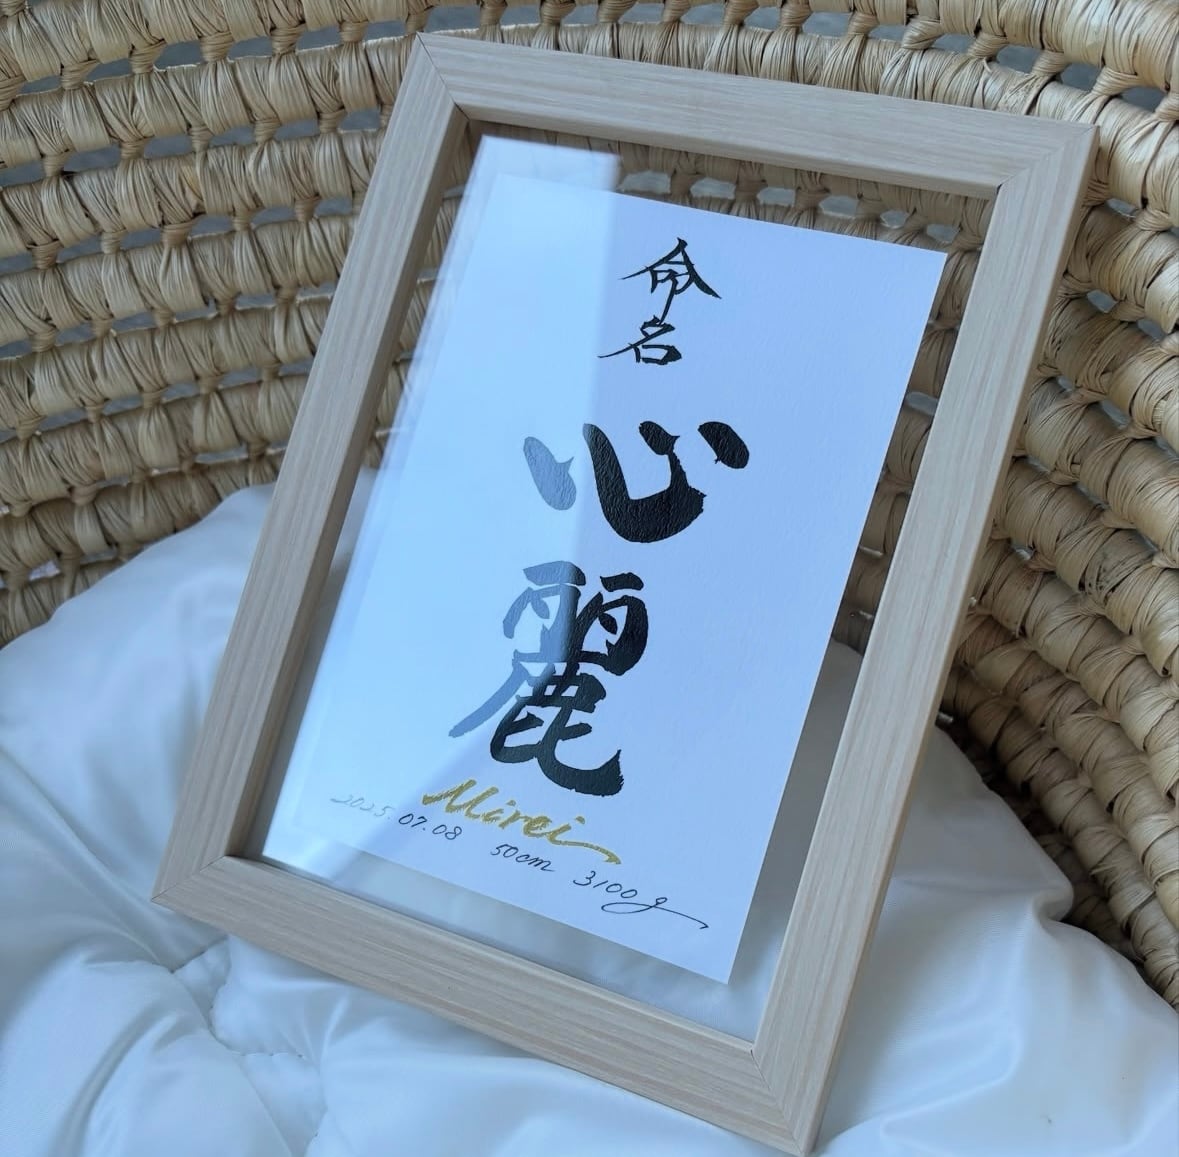 命名
心麗
Mirei
2025.07.08 50cm 3100g